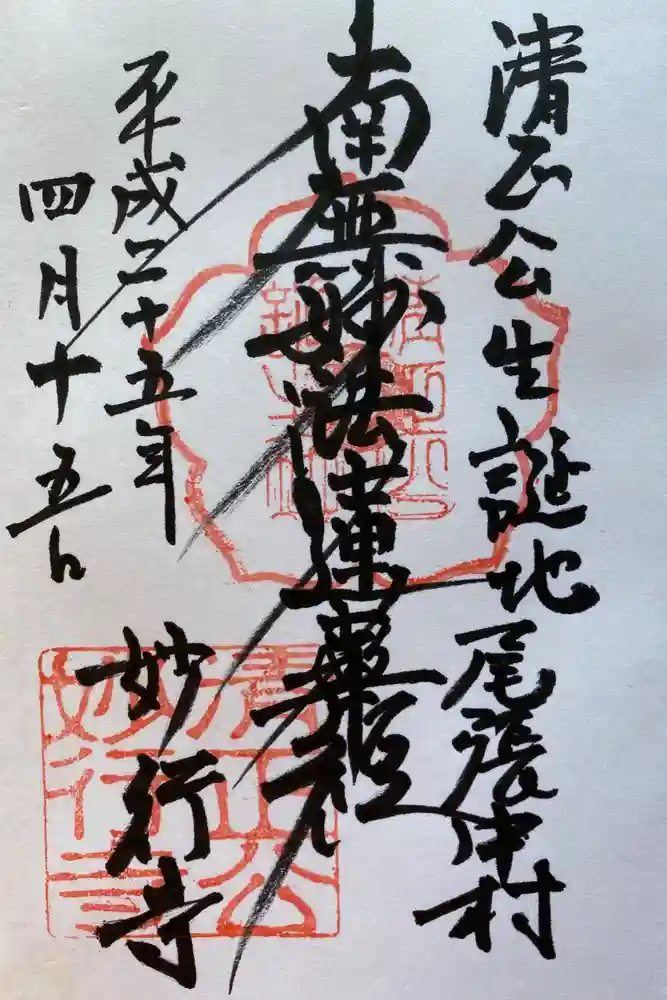 清正公生誕地尾張中村
南無妙法蓮華経
平成二十五年
四月十五日
妙行寺
清正公
妙行寺